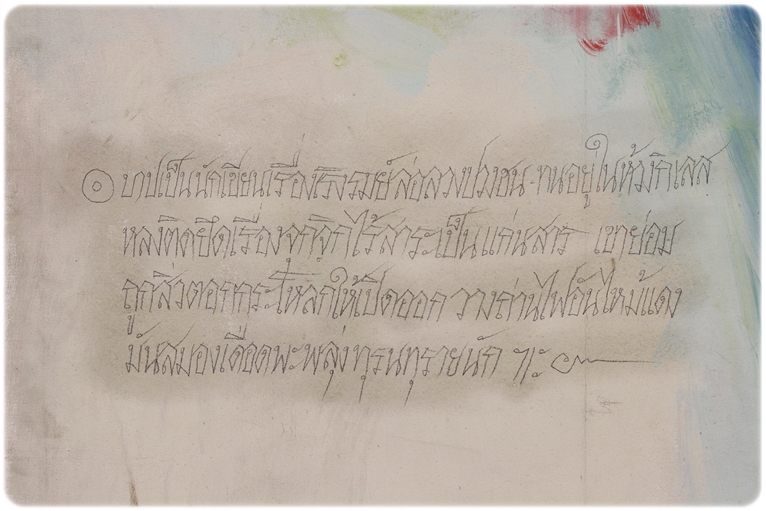 ๏ บาปเป็นนักเขียนเรื่องเริงรมย์ล่อลวงปวงชน ทนอยู่ในห้วงกิเลส
หลงติดยึดเรื่องจุกจิกไร้สาระเป็นแก่นสาร เขาย่อม
ถูกสิ่วตอกกระโหลกให้เปิดออก วางถ่านไฟอันไหม้แดง
มันสมองเดือดพะพลุ่งทุรนทุรายนัก ฯะ๛